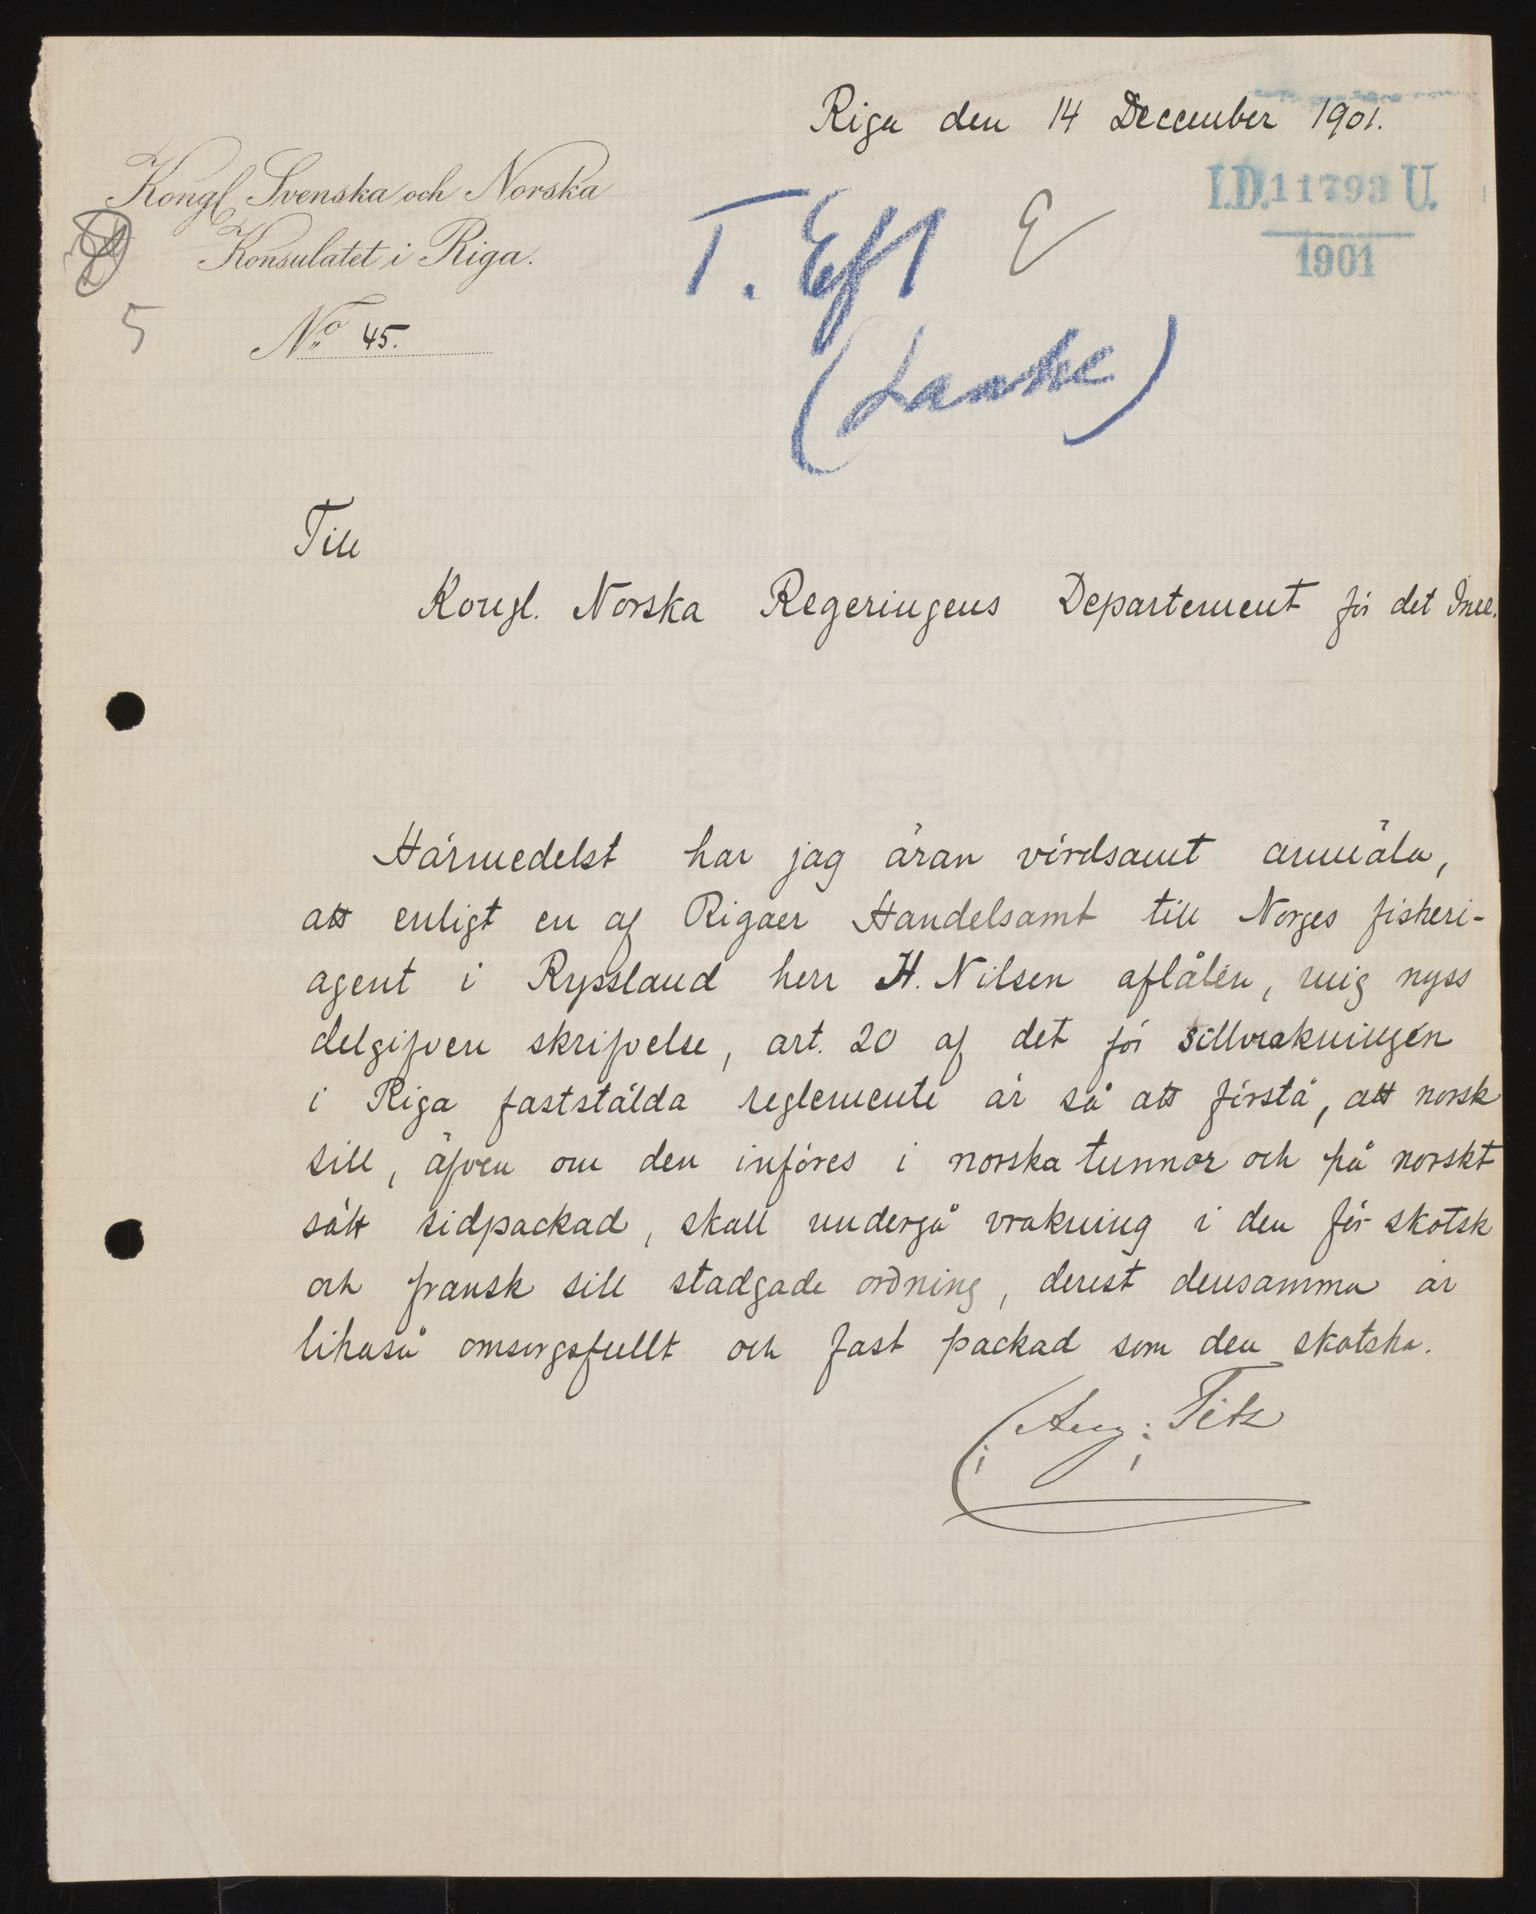 Riga den 14 December 1901.
Kongl. Svenska och Norska
Konsulatet i Riga.
No 45.
5
I.D. 11793 U.
1901
T. Eft
Till
Kongl. Norska Regeringens Departement för det Inre.
Härmedelst har jag äran vördsamt anmäla,
att enligt en af Rigaer Handelsamt till Norges fiskeri-
agent i Ryssland herr H. Nilsen aflåten, mig nyss
delgifven skrifvelse, art. 20 af det för sillvrakningen
i Riga faststälda reglemente är så att förstå, att norsk
sill, äfven om den införes i norska tunnor och på norskt
sätt sidpackad, skall undergå vrakning i den för skotsk
och fransk sill stadgade ordning, derest densamma är
likaså omsorgsfullt och fast packad som den skotska.
Aug: Titz